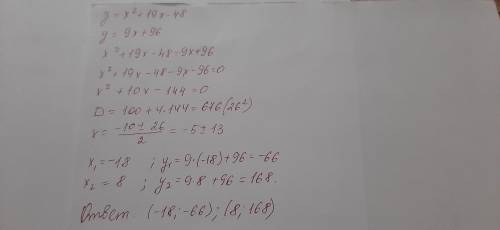 y = x² + 19x - 48
y = 9x + 96
x² + 19x - 48 = 9x + 96
x² + 19x - 48 - 9x - 96 = 0
x² + 10x - 144 = 0
D = 100 + 4·144 = 676 (26²)
x = (-10 ± 26)/2 = -5 ± 13
x₁ = -18 ; y₁ = 9·(-18) + 96 = -66
x₂ = 8 ; y₂ = 9·8 + 96 = 168.
Ответ (-18; -66) ; (8; 168)